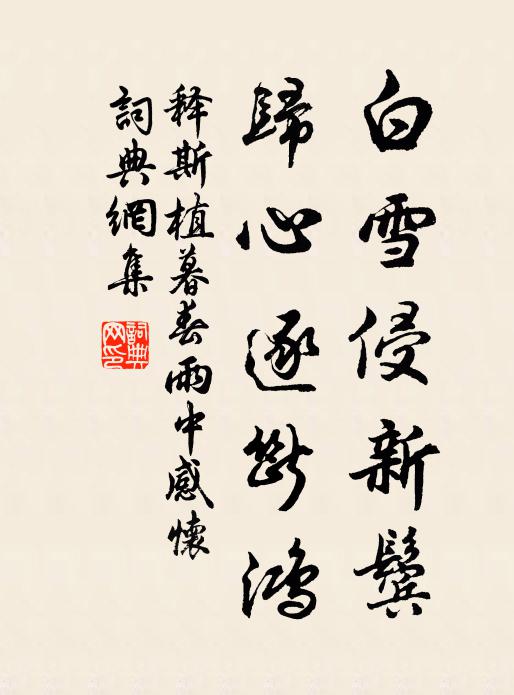 白雪侵新鬓
歸心逐斷鴻
释斯植暮春雨中感懷
詞典網集
詞典網印